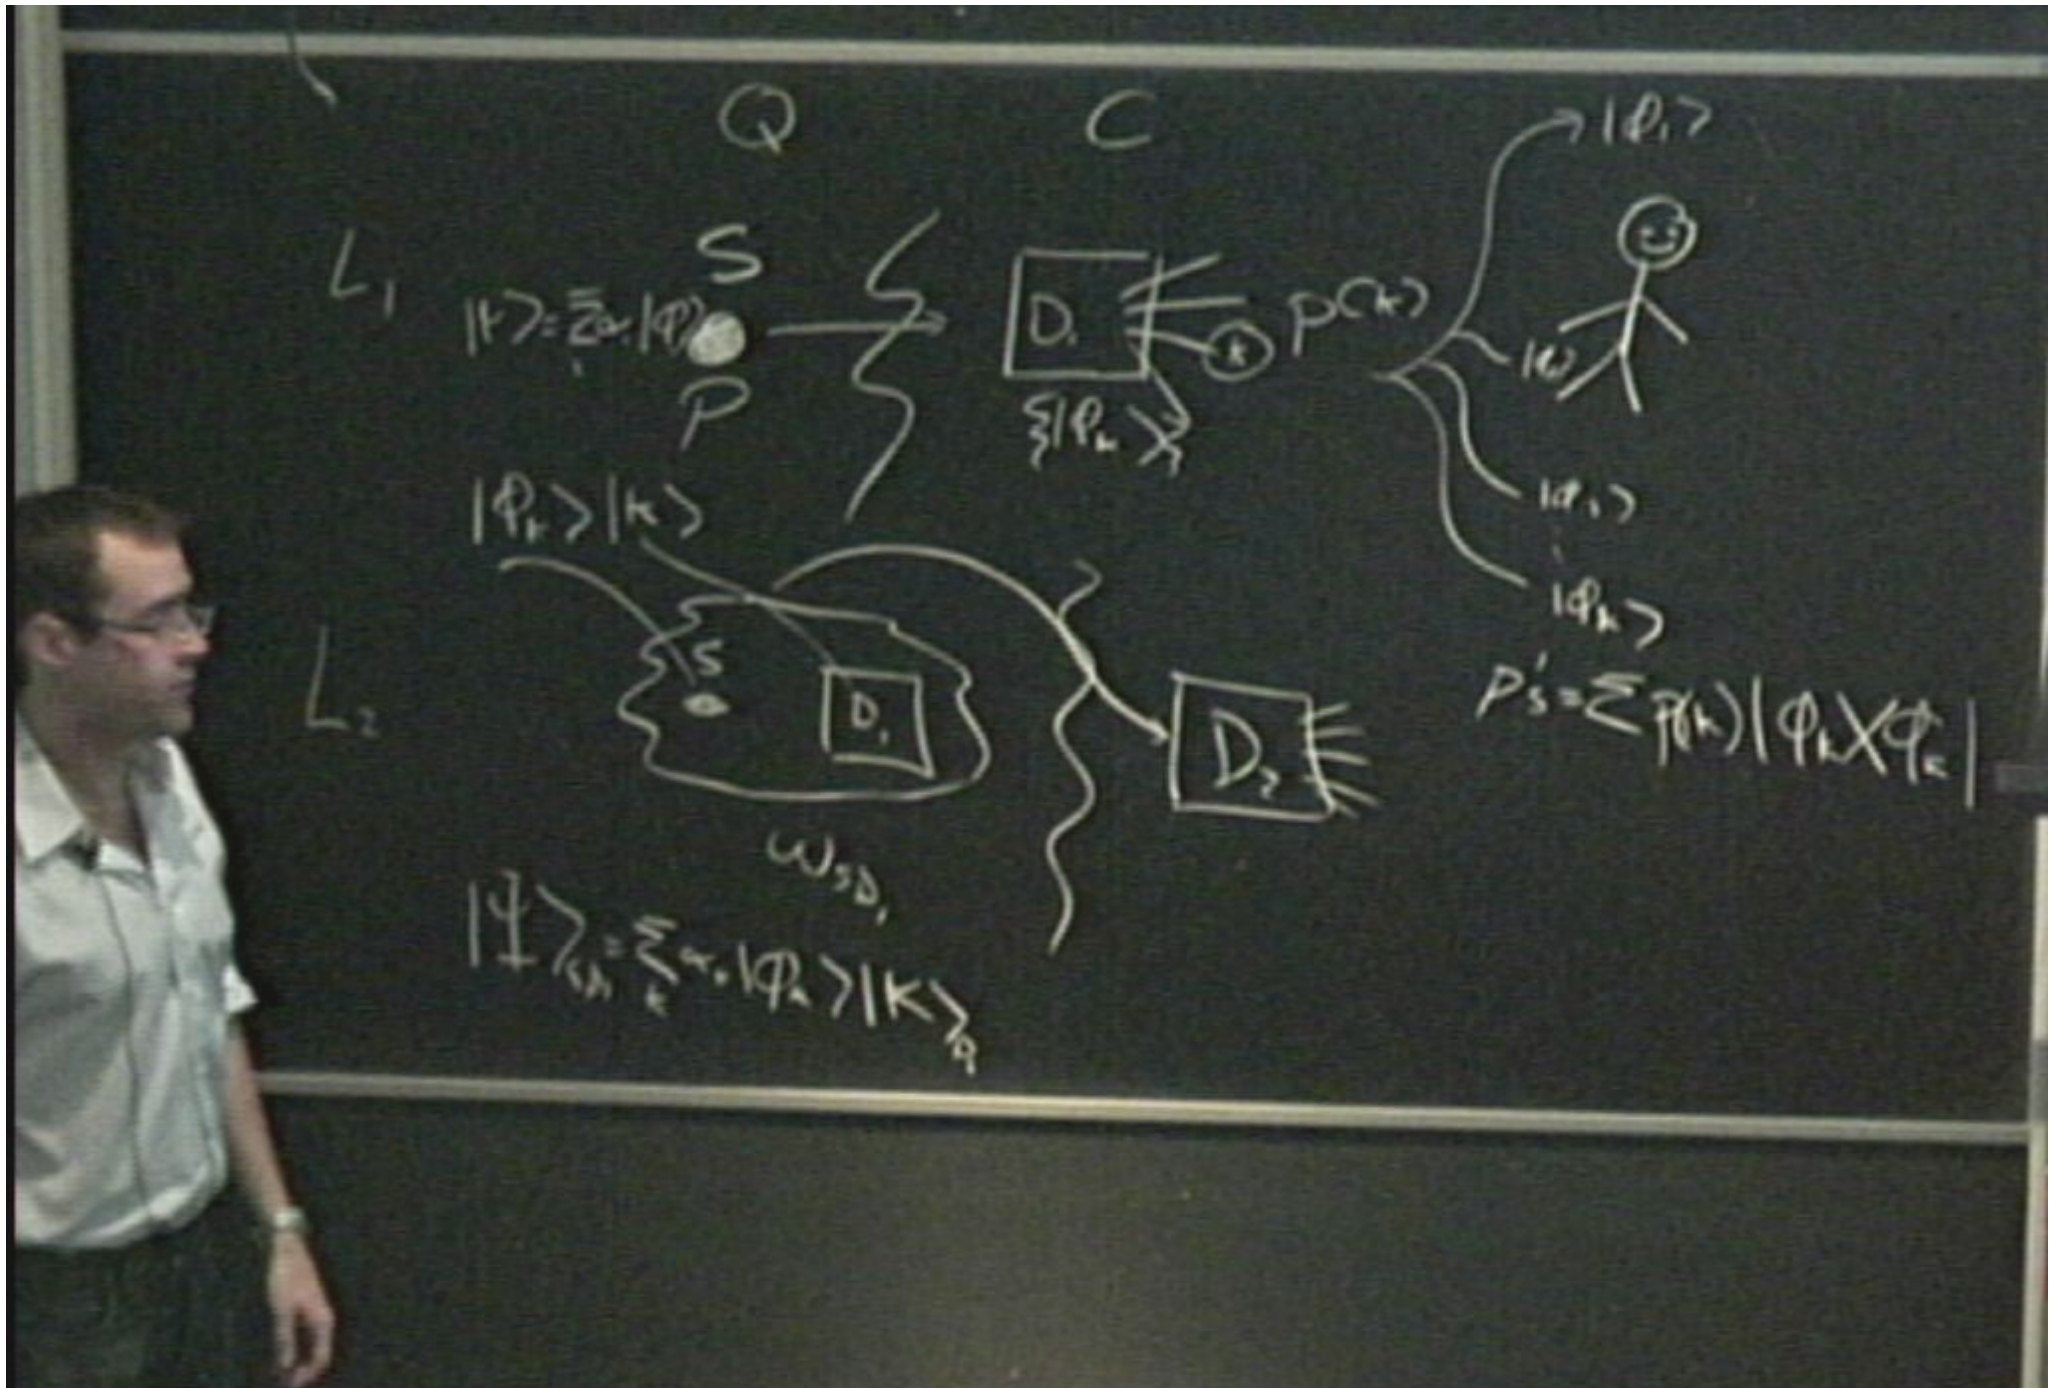 Q C
|φ₁>
L₁ S
|ψ>=Σᵢ αᵢ|φᵢ>
P
D₁ k p(k)
{|φₖ>}
|φₖ>|k>
|φ₁>
|φₖ>
L₂ S D₁
D₂
ρ's=Σ p(k)|φₖ><φₖ|
ω_SD₁
|Ψ>_SD₁=Σₖ αₖ|φₖ>|k>_D₁